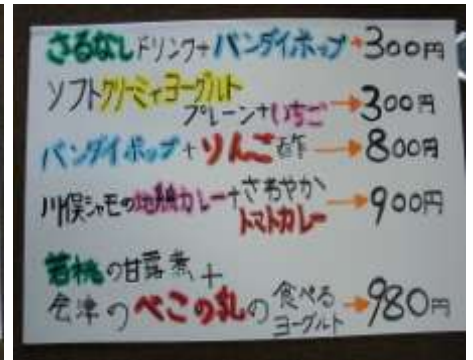 さるなしドリンク+バンダイホップ→300円
ソフトクリーミィヨーグルト
プレーン+いちご→300円
バンダイホップ+りんご酢→800円
川俣シャモの地鶏カレー+さわやか
トマトカレー→900円
若桃の甘露煮+
会津のべこの乳の食べる
ヨーグルト→980円